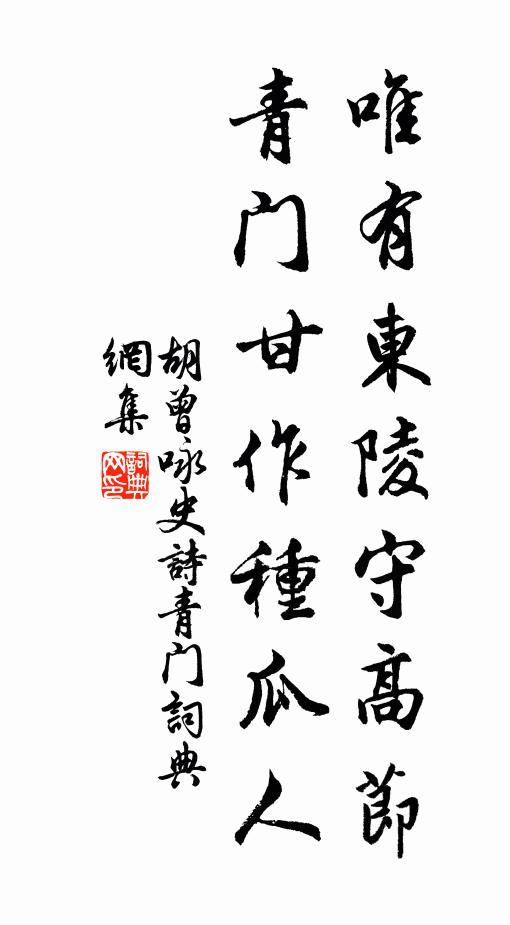 唯有東陵守高節
青門甘作種瓜人
胡曾咏史詩青門詞典
網集
詞典網印